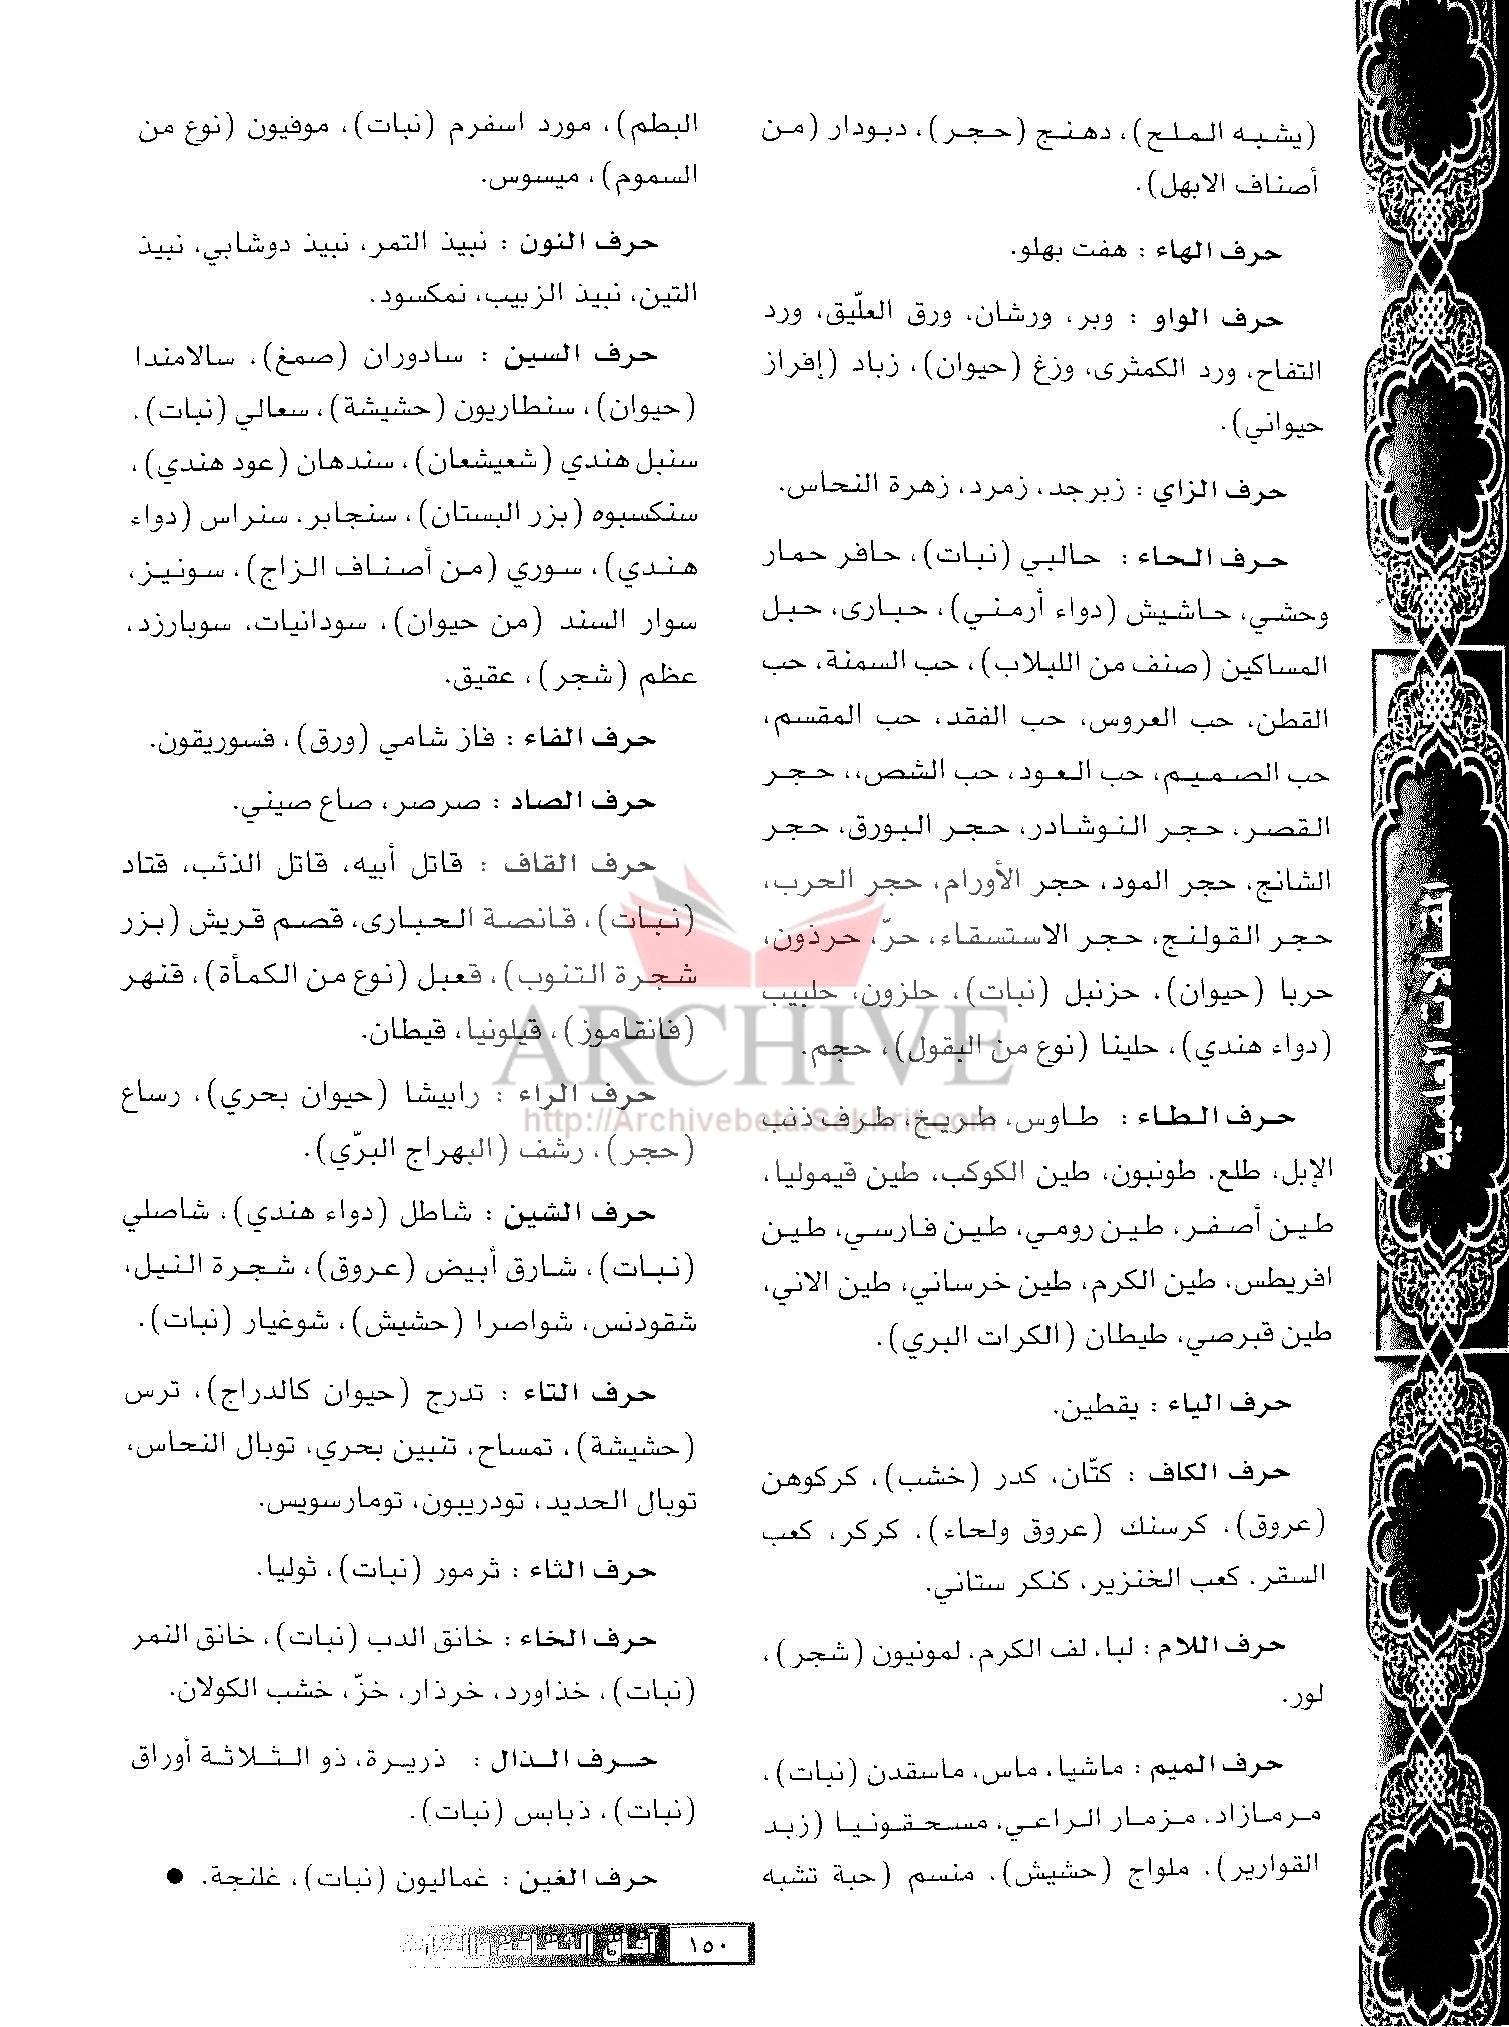 (يشبه الملح)، دهنج (حجر)، ديودار (من
أصناف الابهل).
حرف الهاء : هفت بهلو.
حرف الواو : وبر، ورشان، ورق العلّيق، ورد
التفاح، ورد الكمثرى، وزغ (حيوان)، زباد (إفراز
حيواني).
حرف الزاي : زبرجد، زمرد، زهرة النحاس.
حرف الحاء : حالبي (نبات)، حافر حمار
وحشي، حاشيش (دواء أرمني)، حبارى، حبل
المساكين (صنف من اللبلاب)، حب السمنة، حب
القطن، حب العروس، حب الفقد، حب المقسم،
حب الصميم، حب العود، حب الشص،، حجر
القصر، حجر النوشادر، حجر البورق، حجر
الشانج، حجر المود، حجر الأورام، حجر الحرب،
حجر القولنج، حجر الاستسقاء، حرّ، حرذون،
حربا (حيوان)، حزنبل (نبات)، حلزون، حلبيب
(دواء هندي)، حلينا (نوع من البقول)، حجم.
حرف الطاء : طاوس، طريخ، طرف ذنب
الإبل، طلع، طونبون، طين الكوكب، طين قيموليا،
طين أصفر، طين رومي، طين فارسي، طين
افريطس، طين الكرم، طين خرساني، طين الاني،
طين قبرصي، طيطان (الكرات البري).
حرف الياء : يقطين.
حرف الكاف : كتّان، كدر (خشب)، كركوهن
(عروق)، كرسنك (عروق ولحاء)، كركر، كعب
السقر، كعب الخنزير، كنكر ستاني.
حرف اللام : لبا، لف الكرم، لمونيون (شجر)،
لور.
حرف الميم : ماشيا، ماس، ماسقدن (نبات)،
مرمازاد، مزمار الراعي، مسحقونيا (زبد
القوارير)، ملواج (حشيش)، منسم (حبة تشبه
البطم)، مورد اسفرم (نبات)، موفيون (نوع من
السموم)، ميسوس.
حرف النون : نبيذ التمر، نبيذ دوشابي، نبيذ
التين، نبيذ الزبيب، نمكسود.
حرف السين : سادوران (صمغ)، سالامندا
(حيوان)، سنطاريون (حشيشة)، سعالي (نبات)،
سنبل هندي (شعيشعان)، سندهان (عود هندي)،
سنكسبوه (بزر البستان)، سنجابر، سنراس (دواء
هندي)، سوري (من أصناف الزاج)، سونيز،
سوار السند (من حيوان)، سودانيات، سوبارزد،
عظم (شجر)، عقيق.
حرف الفاء : فاز شامي (ورق)، فسوريقون.
حرف الصاد : صرصر، صاع صيني.
حرف القاف : قاتل أبيه، قاتل الذئب، قتاد
(نبات)، قانصة الحبارى، قصم قريش (بزر
شجرة التنوب)، قعبل (نوع من الكمأة)، قنهر
(فانقاموز)، قيلونيا، قيطان.
حرف الراء : رابيشا (حيوان بحري)، رساع
(حجر)، رشف (البهراج البرّي).
حرف الشين : شاطل (دواء هندي)، شاصلي
(نبات)، شارق أبيض (عروق)، شجرة النيل،
شقودنس، شواصرا (حشيش)، شوغيار (نبات).
حرف التاء : تدرج (حيوان كالدراج)، ترس
(حشيشة)، تمساح، تنبين بحري، توبال النحاس،
توبال الحديد، تودريبون، تومارسويس.
حرف الثاء : ثرمور (نبات)، ثوليا.
حرف الخاء : خانق الدب (نبات)، خانق النمر
(نبات)، خذاورد، خرذار، خزّ، خشب الكولان.
حرف الذال : ذريرة، ذو الثلاثة أوراق
(نبات)، ذبابس (نبات).
حرف الغين : غماليون (نبات)، غلنجة. ●
المقالات العلمية
ARCHIVE
http://Archivebeta.Sakhrit.com
١٥٠
آفاق الثقافة والتراث